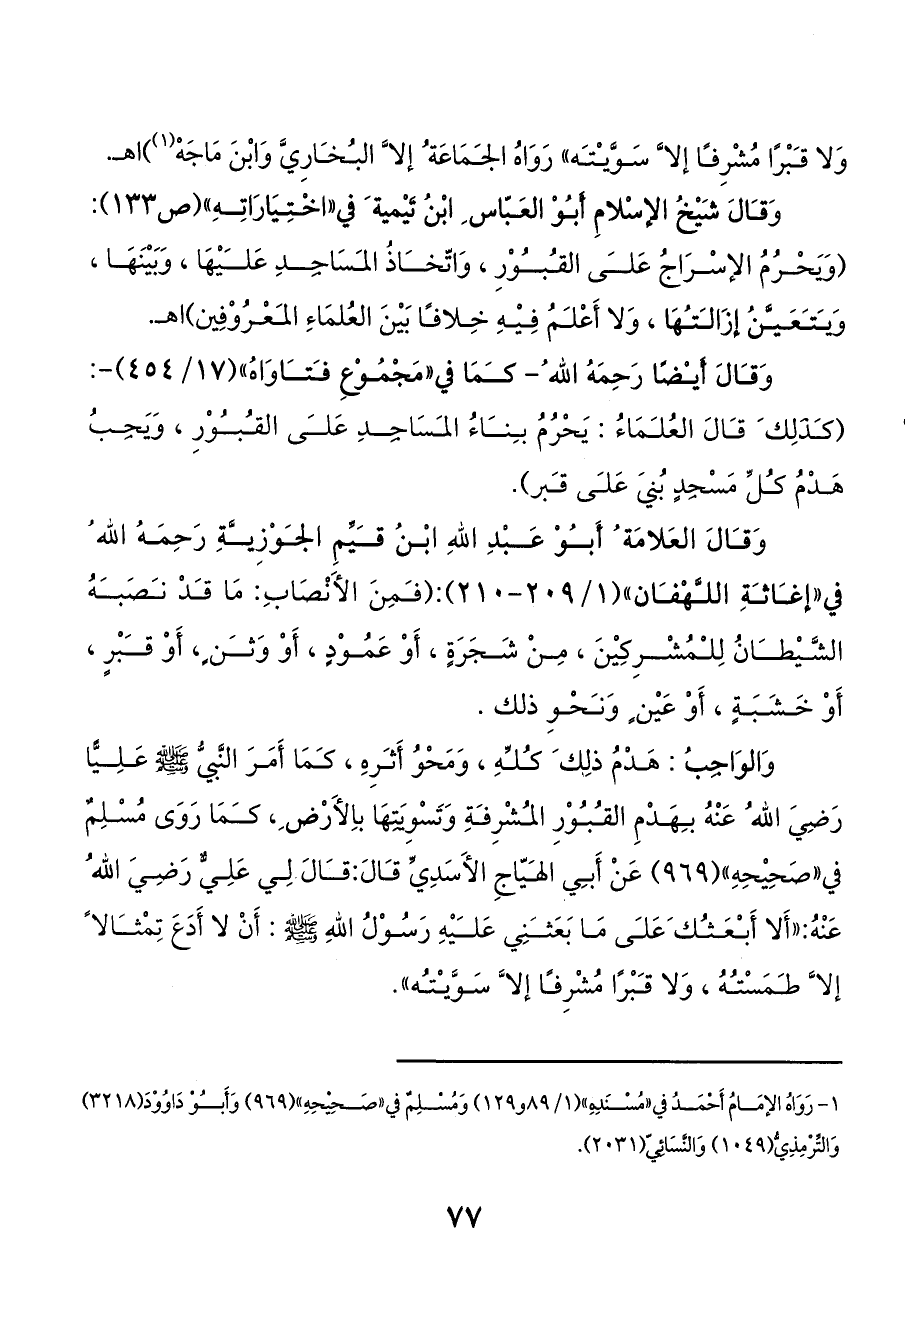 وَلا قَبْرًا مُشْرِفًا إلاَّ سَوَّيْتَه» رَوَاهُ الجَمَاعَةُ إلاَّ البُخَارِيَّ وَابْنَ مَاجَهْ(١))اهـ.
وَقَالَ شَيْخُ الإسْلامِ أبُوْ العَبَّاسِ ابْنُ تَيْمِيةَ في «اخْتِيَارَاتِهِ»(ص١٣٣):
(وَيَحْرُمُ الإسْرَاجُ عَلَى القُبُوْرِ، وَاتِّخَاذُ المَسَاجِدِ عَلَيْهَا، وَبَيْنَهَا،
وَيَتَعَيَّنُ إزَالَتُهَا، وَلا أعْلَمُ فِيْهِ خِلافًا بَيْنَ العُلَمَاءِ المَعْرُوْفِين)اهـ.
وَقَالَ أيْضًا رَحِمَهُ اللهُ- كَمَا في «مَجْمُوْعِ فَتَاوَاهُ»(١٧/ ٤٥٤)-:
(كَذَلِكَ قَالَ العُلَمَاءُ: يَحْرُمُ بِنَاءُ المَسَاجِدِ عَلَى القُبُوْرِ، وَيَجِبُ
هَدْمُ كُلِّ مَسْجِدٍ بُنِيَ عَلَى قَبر).
وَقَالَ العَلامَةُ أبُوْ عَبْدِ اللهِ ابْنُ قَيِّمِ الجَوْزِيةِ رَحِمَهُ اللهُ
في «إغَاثَةِ اللَّهْفَان»(١/ ٢٠٩-٢١٠):(فَمِنَ الأنْصَابِ: مَا قَدْ نَصَبَهُ
الشَّيْطَانُ لِلْمُشْرِكِيْنَ، مِنْ شَجَرَةٍ، أوْ عَمُوْدٍ، أوْ وَثَنٍ، أوْ قَبْرٍ،
أوْ خَشَبَةٍ، أوْ عَيْنٍ وَنَحْوِ ذلك.
وَالوَاجِبُ: هَدْمُ ذلِكَ كُلِّهِ، وَمَحْوُ أثَرِهِ، كَمَا أمَرَ النَّبيُّ ﷺ عَلِيًّا
رَضِيَ اللهُ عَنْهُ بِهَدْمِ القُبُوْرِ المُشْرِفَةِ وَتَسْوِيَتِهَا بِالأَرْضِ، كَمَا رَوَى مُسْلِمٌ
في «صَحِيْحِهِ»(٩٦٩) عَنْ أبي الهَيَّاجِ الأسَدِيِّ قَالَ:قَالَ لِي عَلِيٌّ رَضِيَ اللهُ
عَنْهُ:«ألا أبْعَثُكَ عَلَى مَا بَعَثَنِي عَلَيْهِ رَسُوْلُ اللهِ ﷺ: أنْ لا أدَعَ تِمْثَالاً
إلاَّ طَمَسْتُهُ، وَلا قَبْرًا مُشْرِفًا إلاَّ سَوَّيْتُه».
١- رَوَاهُ الإمَامُ أحْمَدُ في «مُسْنَدِهِ»(١/ ٨٩و١٢٩) وَمُسْلِمٌ في «صَحِيْحِهِ»(٩٦٩) وَأبُوْ دَاوُوْدَ(٣٢١٨)
وَالتِّرْمِذِيُّ(١٠٤٩) وَالنَّسَائِيّ(٢٠٣١).
٧٧